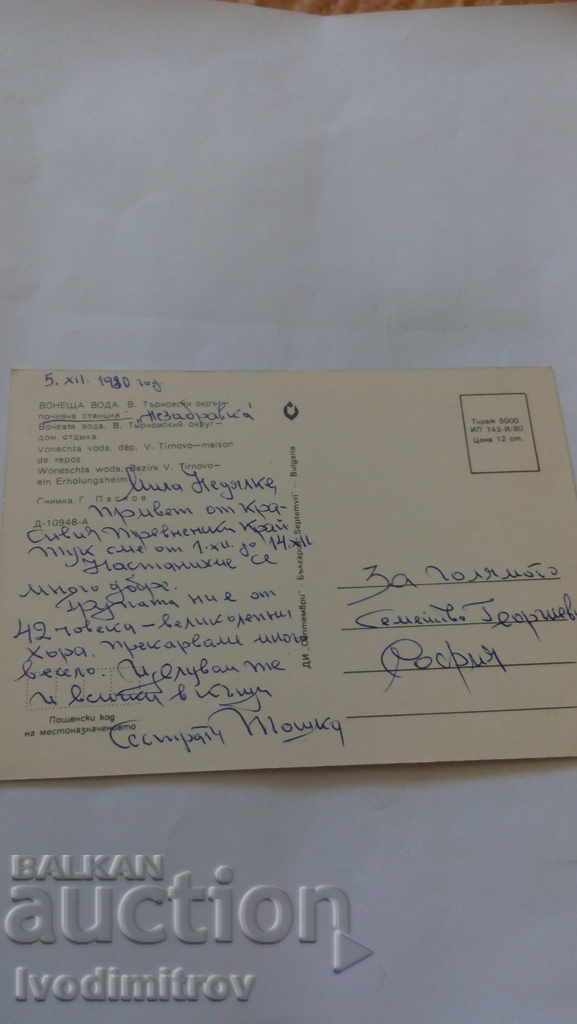 5. XII. 1980 год.
ВОНЕЩА ВОДА. В. Търновски окръг —
почивна станция „Незабравка“
Вонеща вода. В. Тырновский округ —
дом отдыха
Vonechta voda, dép. V. Tirnovo—maison
de repos
Woneschta woda, Bezirk V. Tirnovo—
ein Erholungsheim
Снимка Г. Пасков
Д-10948-А
Мила Недялке,
Привет от кра-
сивия тревненски край
Тук сме от 1.XII. до 14.XII
Настанихме се
много добре.
Групата ни е от
42 човека – великолепни
хора, прекарваме много
весело. Целувам те
и всички в къщи
Сестрата Тошка
Пощенски код
на местоназначението
ДИ „Септември“ · България · „Septemvri“ — Bulgaria
Тираж 5000
ИП 143-И/80
Цена 12 ст.
За голямото
Семейство Георгиеви
София
BALKAN
auction
Ivodimitrov